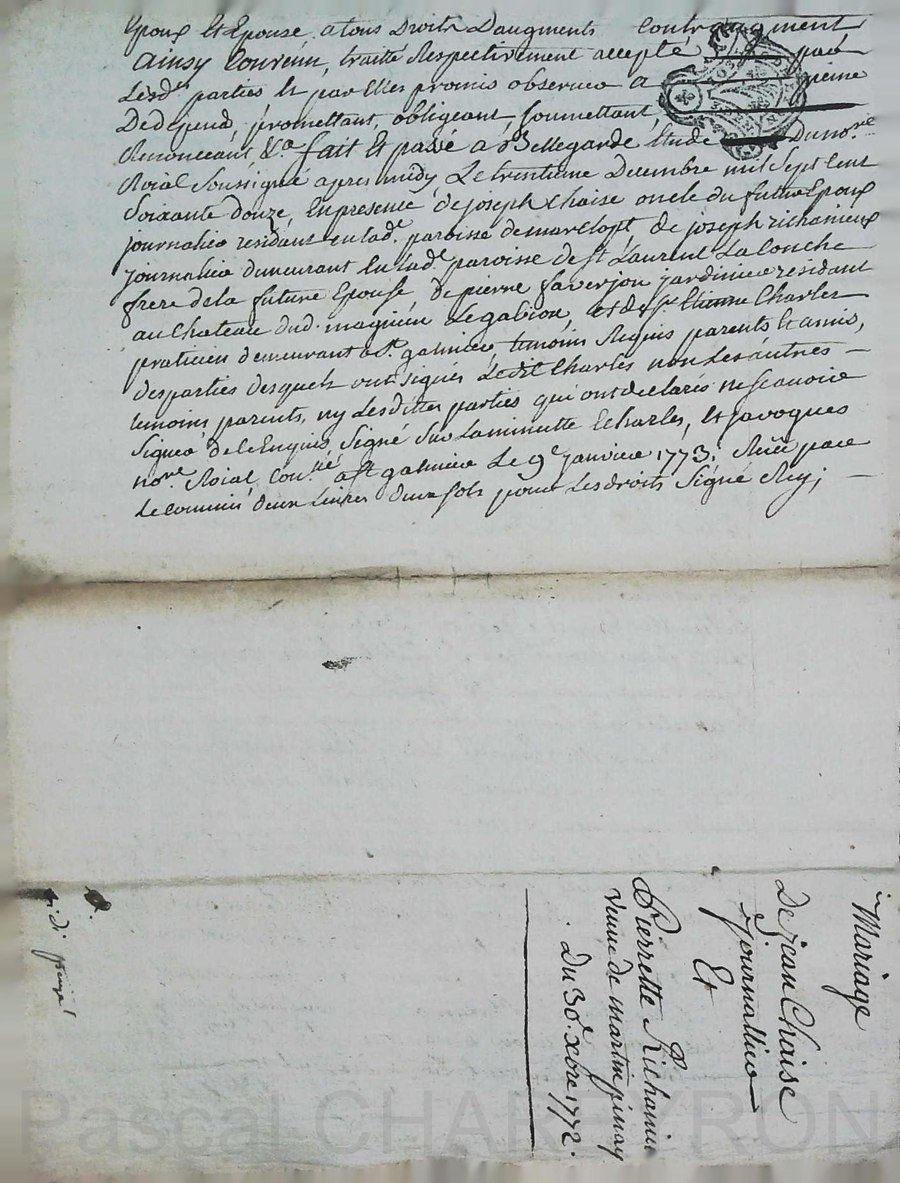 Epoux Et Epouse a tous Droits Daugments Contraugment
Ainsy Convenu, traitté Respectivement accepté par
Lesd. parties Et par Elles promis observer a peine
De dépend, promettant, obligeant, soummettant,
Renonceant, &a. fait Et passé a Bellegarde Etude Du no.re
Roial Soussigné apres midy Le trentieme Decembre mil Sept Cent
Soixante douze, En presence de joseph Chaise oncle du futur Epoux
journalier residant en lad.e paroisse de marclopt, de joseph richanieux
journalier demeurant En lad.e paroisse de st Laurent La Conche
frere de la future Epouse, de pierre faverjon jardinier residant
au Chateau dud. magnieu Le gabion, et de Sr. Etienne Charles
praticien demeurant a St. galmier, temoins Requis parents Et amis,
des parties desquels ont signés Ledit Charles non Les autres –
temoins parents, ny Lesdittes parties qui ont declarés ne scavoir
Signer de ce Enquis, Signé Sur La minutte E Charles, Et javogues
no.re Roial, Con.llé a St galmier Le 9e janvier 1773; Reçu par
Le commis deux Livres deux sols pour Les droits Signé Rey; –
Mariage
De jean Chaise
journallier
Et
Pierrette Richanieu
veuve de martin pinay
Du 30.e xbre 1772.
Pascal CHAREYRON